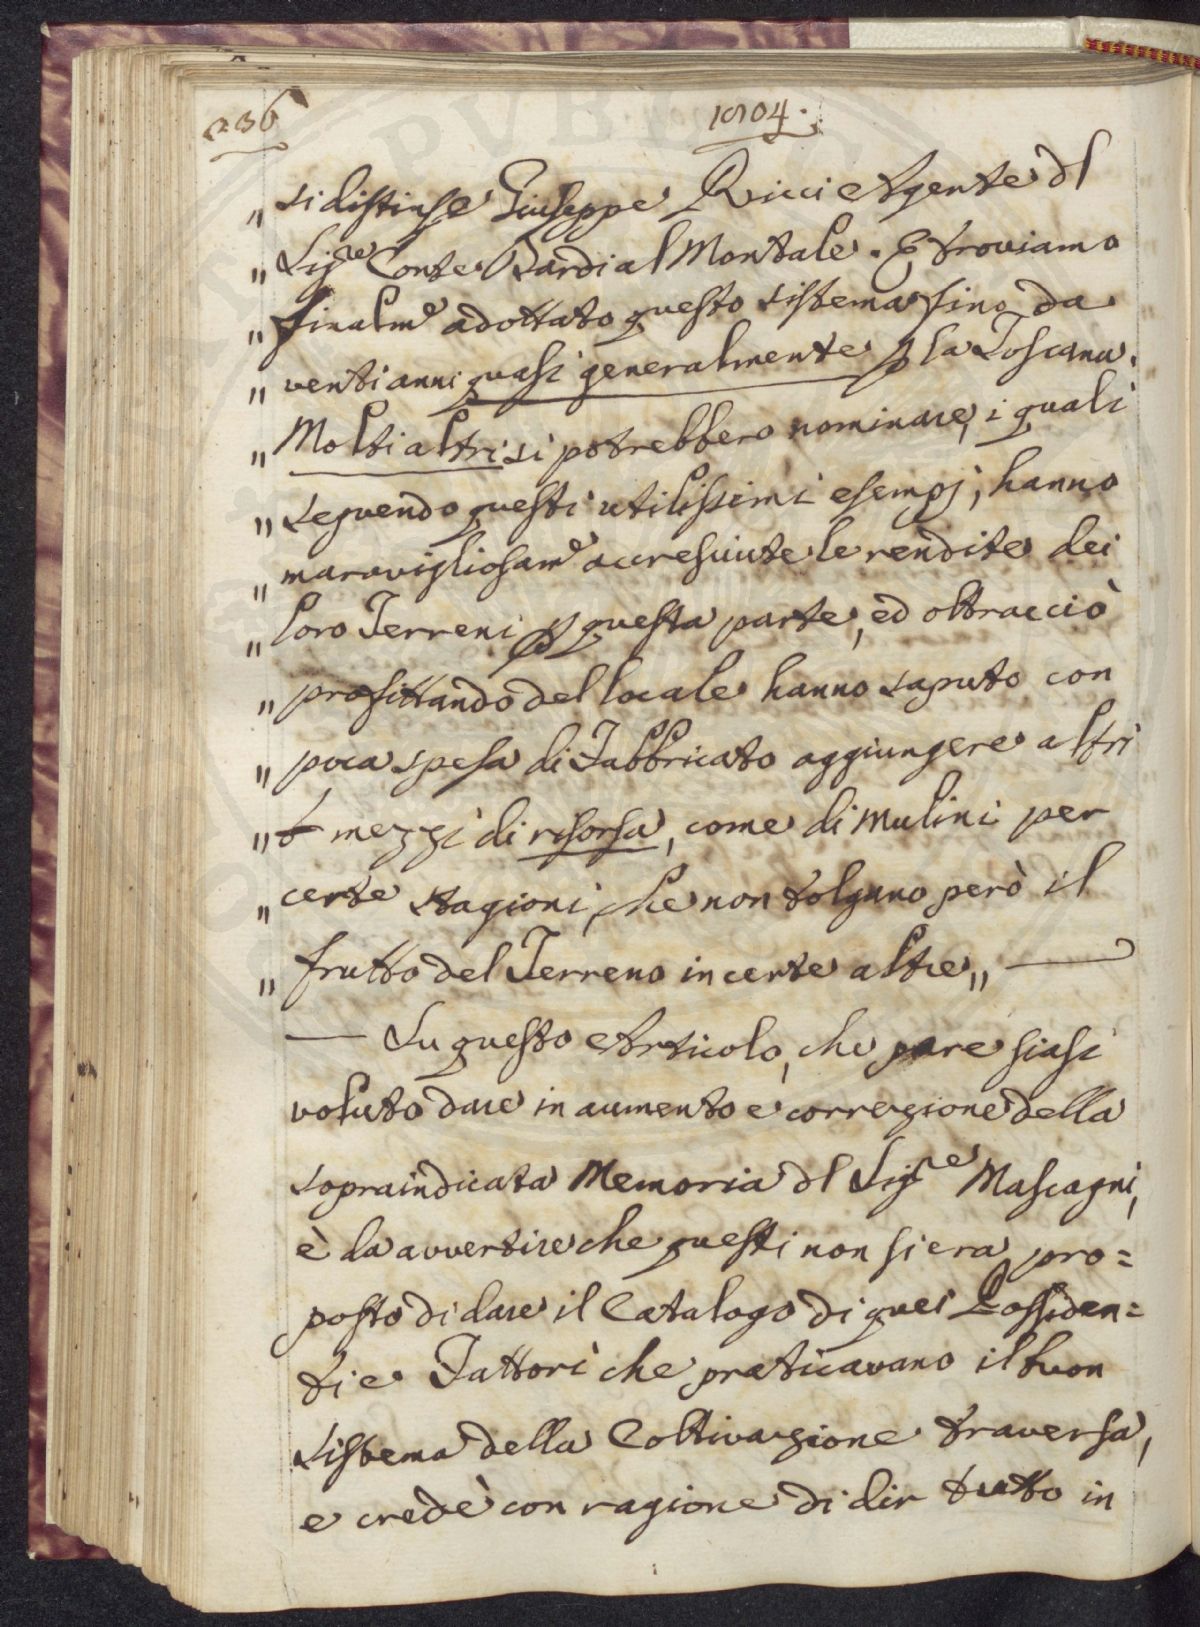 236
1804.
„ si distinse Giuseppe Ricci Agente dl
„ Sigre Conte Bardi al Montale. E troviamo
„ finalme adottato questo sistema sino da
„ venti anni quasi generalmente p la Toscana.
„ Molti altri si potrebbero nominare, i quali
„ seguendo questi utilissimi esempj, hanno
„ maravigliosame accresciute le rendite dei
„ loro Terreni p questa parte, ed oltracciò
„ profittando del locale hanno saputo con
„ poca spesa di Fabbricato aggiungere altri
„ mezzi di risorsa, come di Mulini per
„ certe stagioni, che non tolgano però il
„ frutto del Terreno in certe altre„ —
— Su questo Articolo, che pare siasi
voluto dare in aumento e correzione della
sopraindicata Memoria dl Sigre Mascagni,
è da avvertire che questi non si era pro=
posto di dare il Catalogo di quei Possiden=
ti e Fattori che praticavano il buon
sistema della Coltivazione traversa,
e credè con ragione di dir tutto in